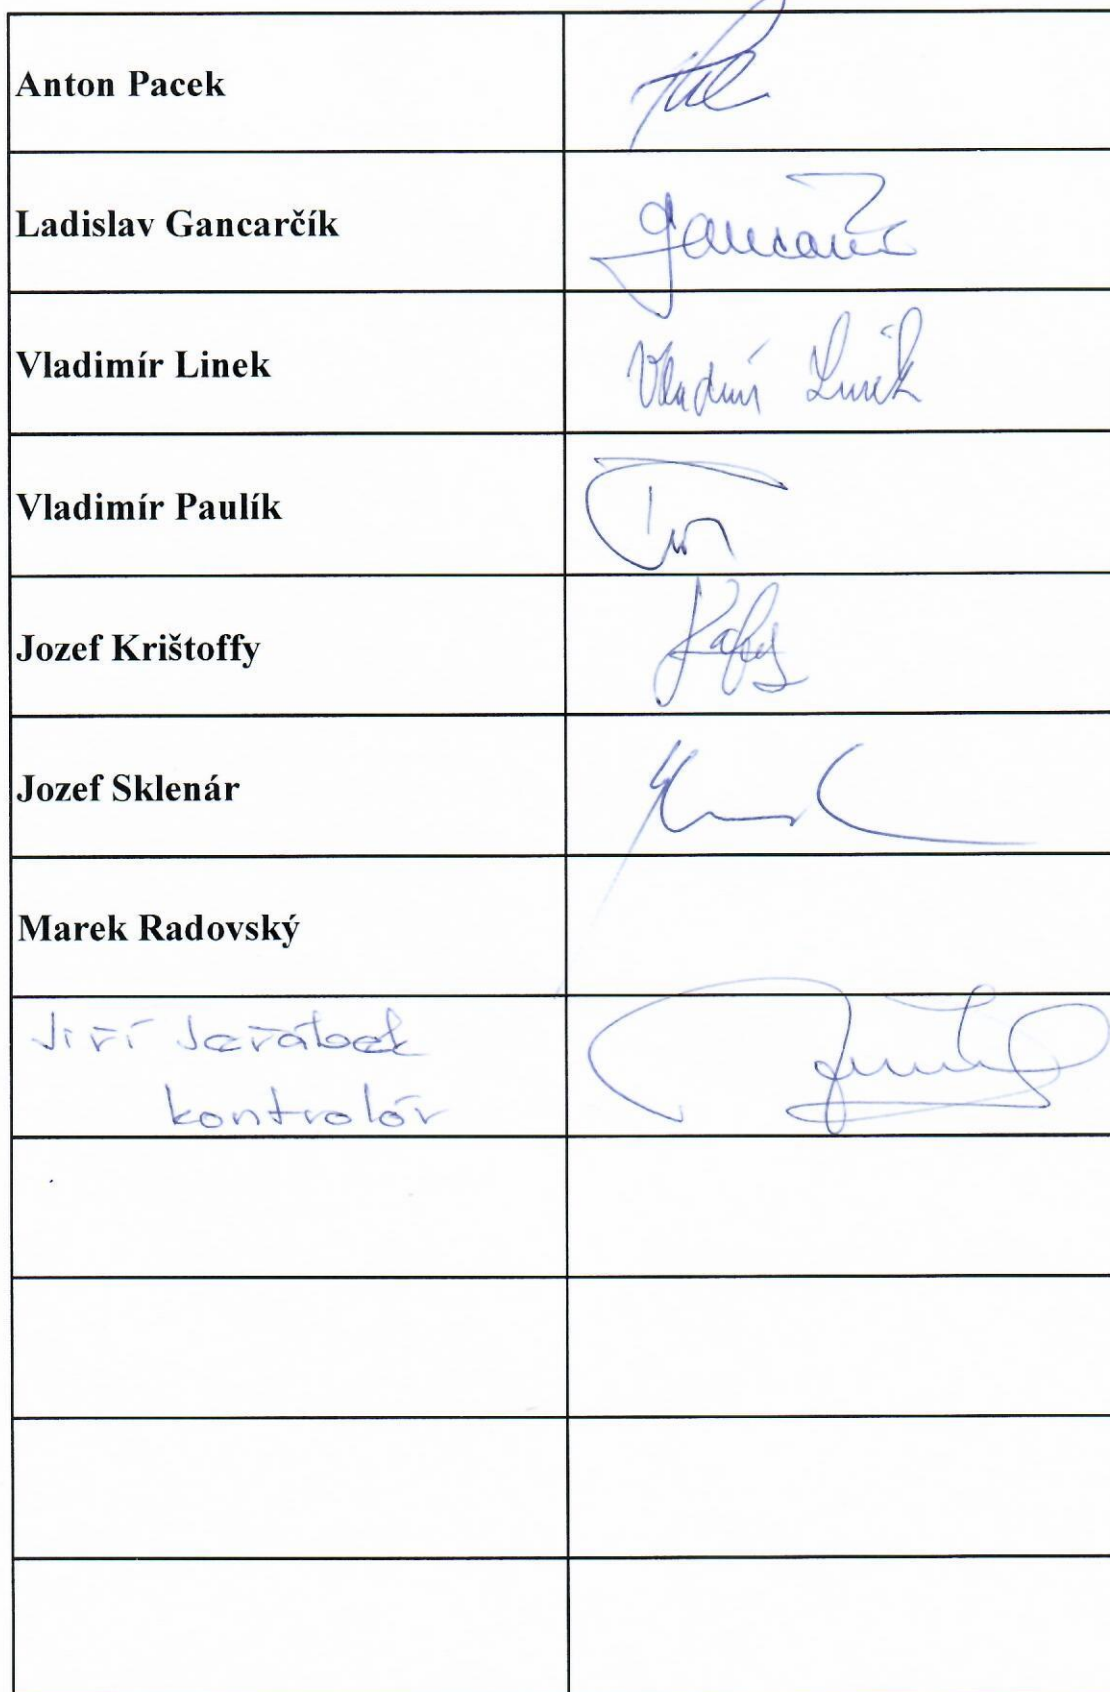 Anton Pacek
Ladislav Gancarčík
Vladimír Linek
Vladimír Linek
Vladimír Paulík
Jozef Krištoffy
Jozef Sklenár
Marek Radovský
Jiří Jeřábek
kontrolór